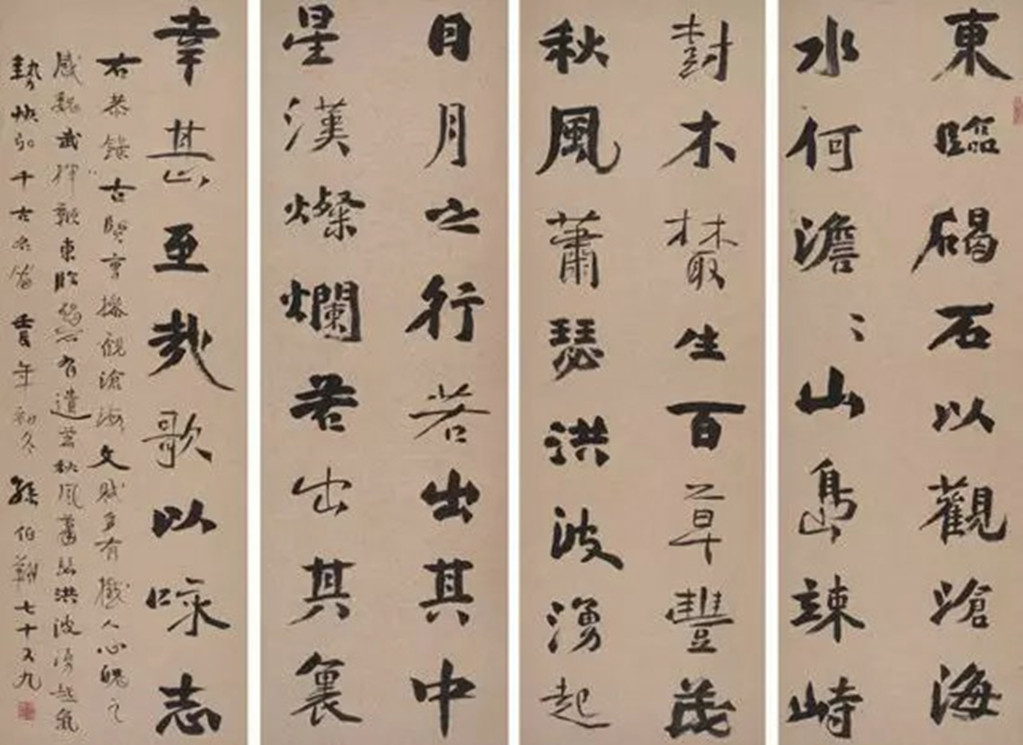 東臨碣石以觀滄海
水何澹ミ山島竦峙
尌木樷生百草豐茂
秋風蕭瑟洪波湧起
日月之行若出其中
星漢燦爛若出其裏
幸甚至哉歌以咏志
右恭錄古賢曹操觀滄海文賦有撼人心魄之
感魏武揮鞭東臨碣石有遺篇秋風蕭瑟洪波湧起氣
勢恢弘千古名篇壬辰年初冬孫伯翔七十又九